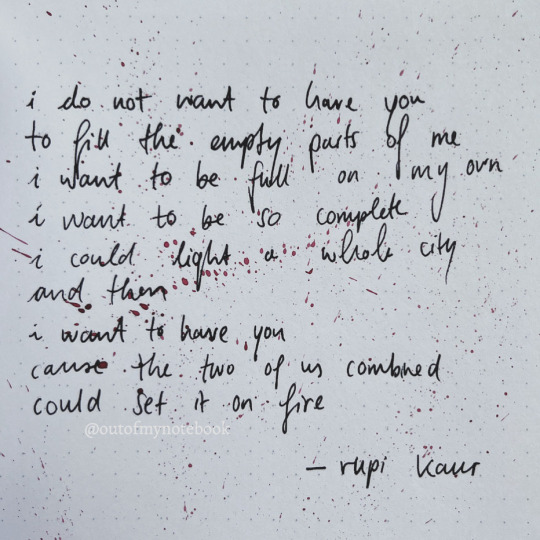 i do not want to have you
to fill the empty parts of me
i want to be full on my own
i want to be so complete
i could light a whole city
and then
i want to have you
cause the two of us combined
could set it on fire
@outofmynotebook
– rupi kaur